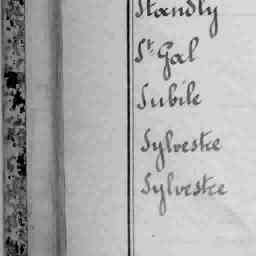 Standly
St Gal
Subile
Sylvestre
Sylvestre